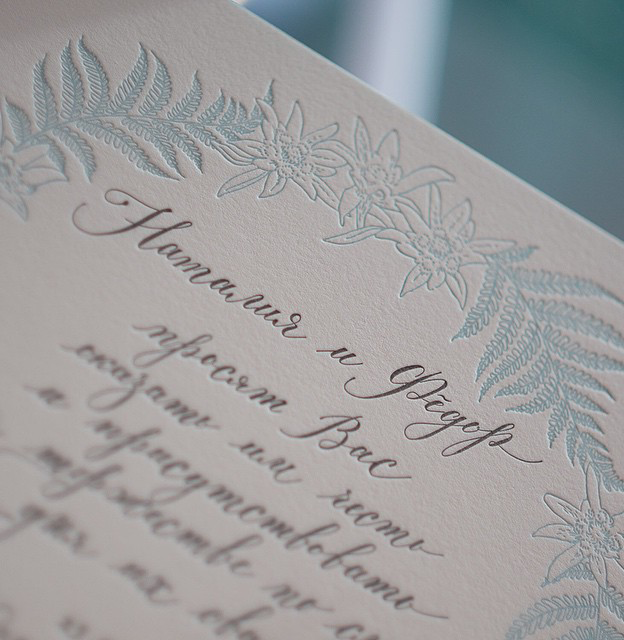 Наталия и Фёдор
просят Вас
оказать им честь
и присутствовать
торжестве по
дня их